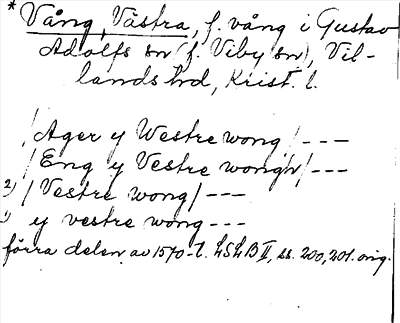 * Vång, Västra, f. vång i Gustav
Adolfs sn (f. Viby sn), Vil-
lands hd, Krist. l.
/Ager y Westre wong/ ---
/Eng y Vestre wongh/ ---
2) /Vestre wong/ ---
1) y vestre wong ---
förra delen av 1570-t. LSLB II, ss. 200, 201. orig.